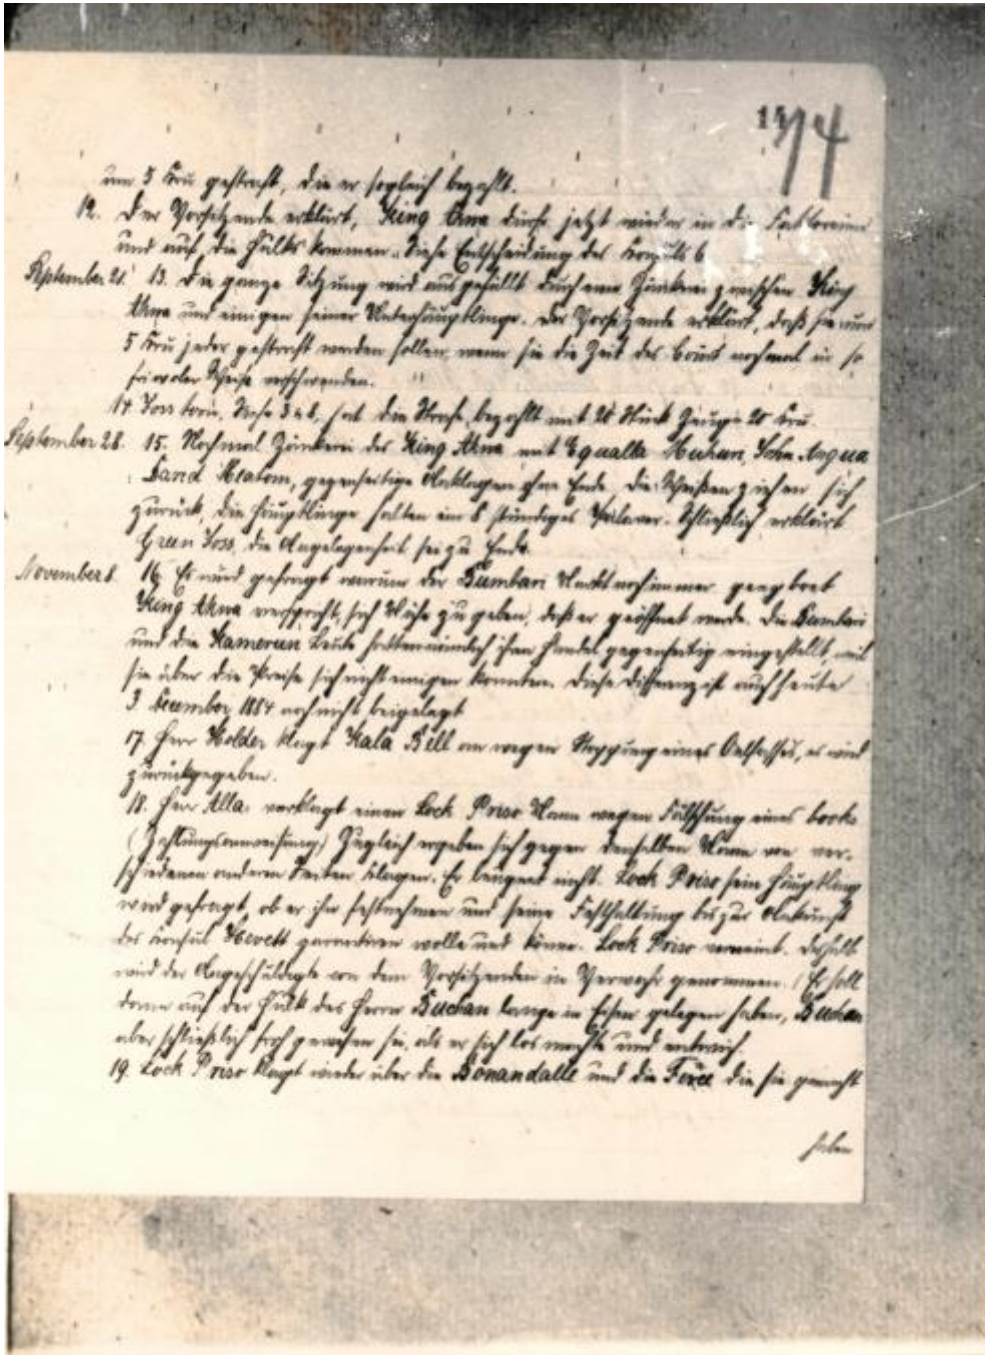 14
um 5 Kru gestraft, die er sogleich bezahlt.
12. Der Vorsitzende erklärt, King Akwa dürfe jetzt wieder in die Faktoreien
und auf die Hulks kommen. Diese Entscheidung des Konsuls
September 21. 13. Die ganze Sitzung wird ausgefüllt durch eine Zänkerei zwischen King
Akwa und einigen seiner Unterhäuptlinge. Der Vorsitzende erklärt, daß sie um
5 Kru jeder gestraft werden sollen, wenn sie die Zeit des Courts nochmal in so
frivoler Weise verschwenden.
14. Joss, hat die Strafe bezahlt mit 20 Stück Zeuge 20 Kru.
September 28. 15. Nochmal Zänkerei des King Akwa mit Equalla John Angua
gegenseitige Anklagen ohne Ende. Die Weißen ziehen sich
zurück, die Häuptlinge halten ein 8 stündiges Palaver. Schließlich erklärt
Green Joss, die Angelegenheit sei zu Ende.
November 8. 16. Es wird gefragt warum der Bumbari Markt noch immer
King Akwa verspricht, sich Mühe zu geben, daß er geöffnet werde. Die Bumbari
und die Kamerun Leute hatten nämlich ihren Handel gegenseitig eingestellt, weil
sie über die Preise sich nicht einigen konnten. Diese Differenz ist auch heute
3 Dezember 1884 noch nicht beigelegt
17. Herr Holder klagt Kala Bell an wegen Stoppung eines Oelfasses, es wird
zurückgegeben.
18. Herr verklagt einen Lock Priso Mann wegen Fälschung eines books
(Zahlungsanweisung) Zugleich ergeben sich gegen denselben Mann von ver-
schiedenen anderen Seiten Klagen. Er leugnet nicht. Lock Priso sein Häuptling
wird gefragt, ob er ihn festnehmen und seine Festhaltung bis zur Ankunft
des Konsul Hewett garantiren wolle und könne. Lock Priso verneint. Deshalb
wird der Angeschuldigte von dem Vorsitzenden in Verwahr genommen. (Er soll
dann auf der Hulk des Herrn Buchan lange in Eisen gelegen haben, Buchan
aber schließlich froh gewesen sein, als er sich los machte und entwich
19. Lock Priso klagt wieder über die Bonandalle und die die sie gemacht
haben